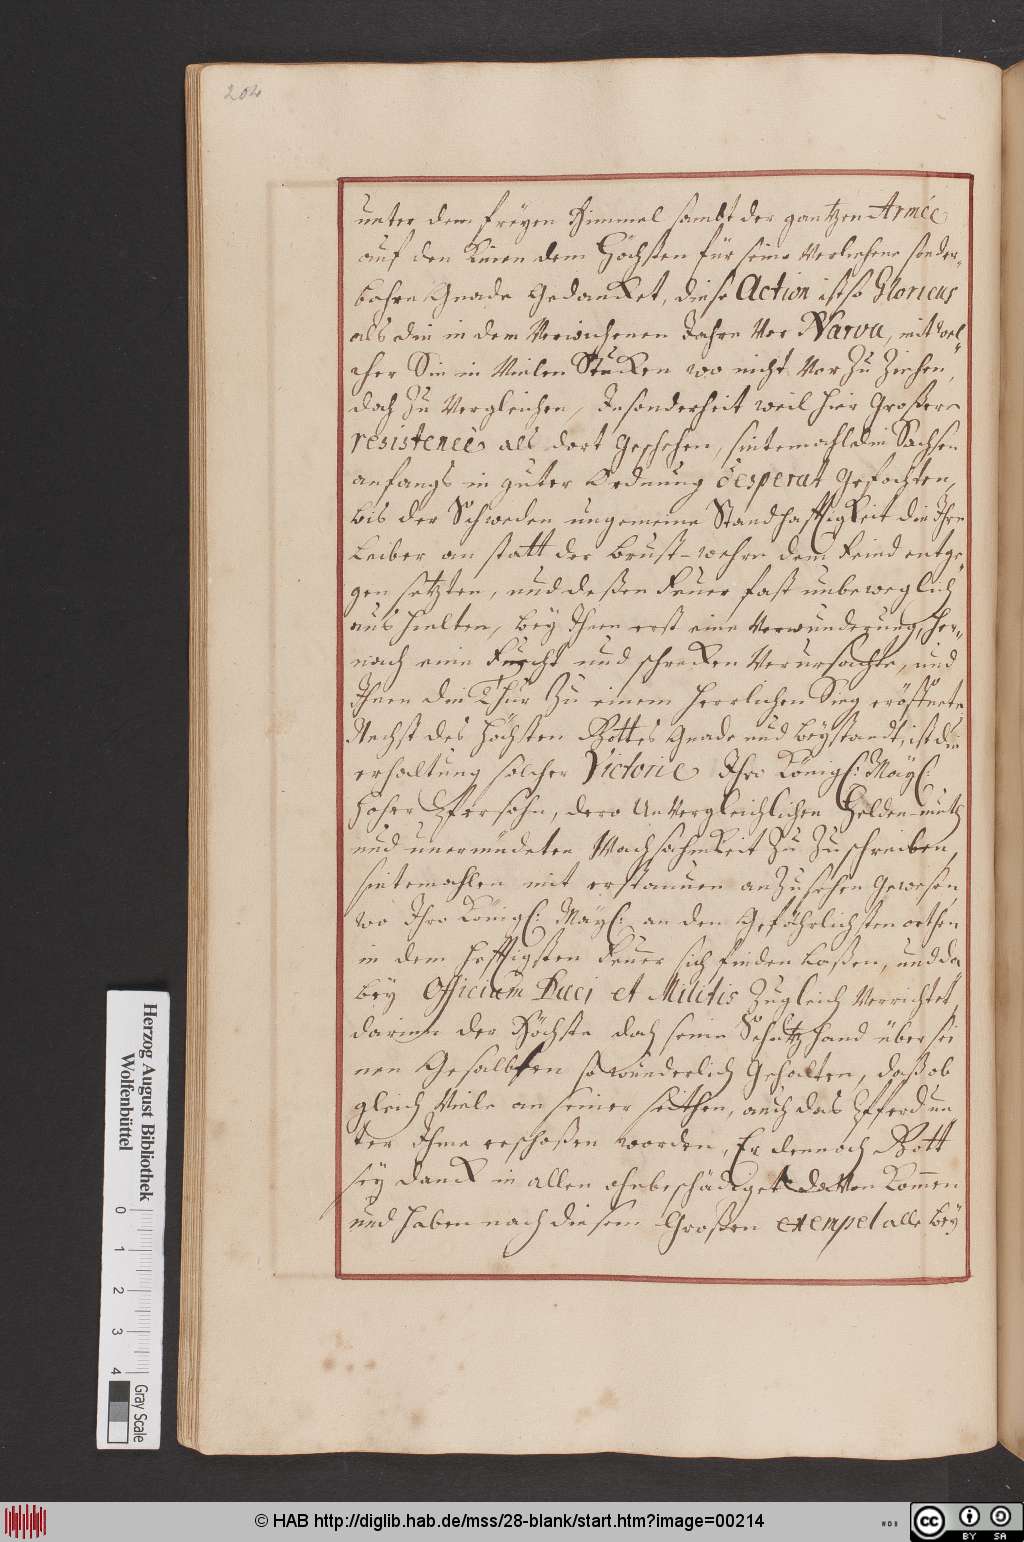 204
unter dem freyen Himmel sambt der gantzen Armée
auf den Knien dem Höchsten für seine verliehene sonder„
bahre Gnade Gedancket, diese Action ist so Glorieus
als die in dem verwichenen Jahre vor Narva, mit wel„
cher Sie in vielen Stücken wo nicht vor zu ziehen,
doch zu vergleichen, Insonderheit weil hier Großere
resistence als dort Geschehen, sintemahl die Sachsen
anfangs in guter Ordnung desperat Gefochten,
bis der Schweden ungemeine Standhafftigkeit die Ihre
Leiber an statt der Brust-wehre dem Feind entge„
gen setzten, und deßen Feuer fast unbeweglich
aus hielten, bey Ihnen erst eine Verwunderung, her„
nach eine Furcht und schrecken verursachte, und
Ihnen die Thür zu einem herrlichen Sieg eröffnete
Nechst des Höchsten Gottes Gnade und beystandt, ist die
erhaltung solcher Victorie Ihro Königl: Mäyl:
hoher Persohn, dero unvergleichlichen Helden-muth
und unermüdeten Wachsahmkeit zu zuschreiben,
sintemahlen mit erstaunen anzusehen Gewesen,
wo Ihro Königl: Mäyl: an den Gefährlichsten orthen
in dem hefftigsten Feuer sich finden laßen, und da
bey Officium Duci et Militis zugleich verrichtet,
darinn der Höchste doch seine Schutz hand über sei
nen Gesalbten so wunderlich Gehalten, daß ob
gleich viele an seiner seithen, auch das Pferd un
ter Ihme erschoßen worden, Er dennoch Gott
sey danck in allen ohnbeschädiget davon kommen
und haben nach diesem Großen exempel alle bey
Herzog August Bibliothek
Wolfenbüttel
0 1 2 3 4
Gray Scale
© HAB http://diglib.hab.de/mss/28-blank/start.htm?image=00214
WDB
cc BY SA